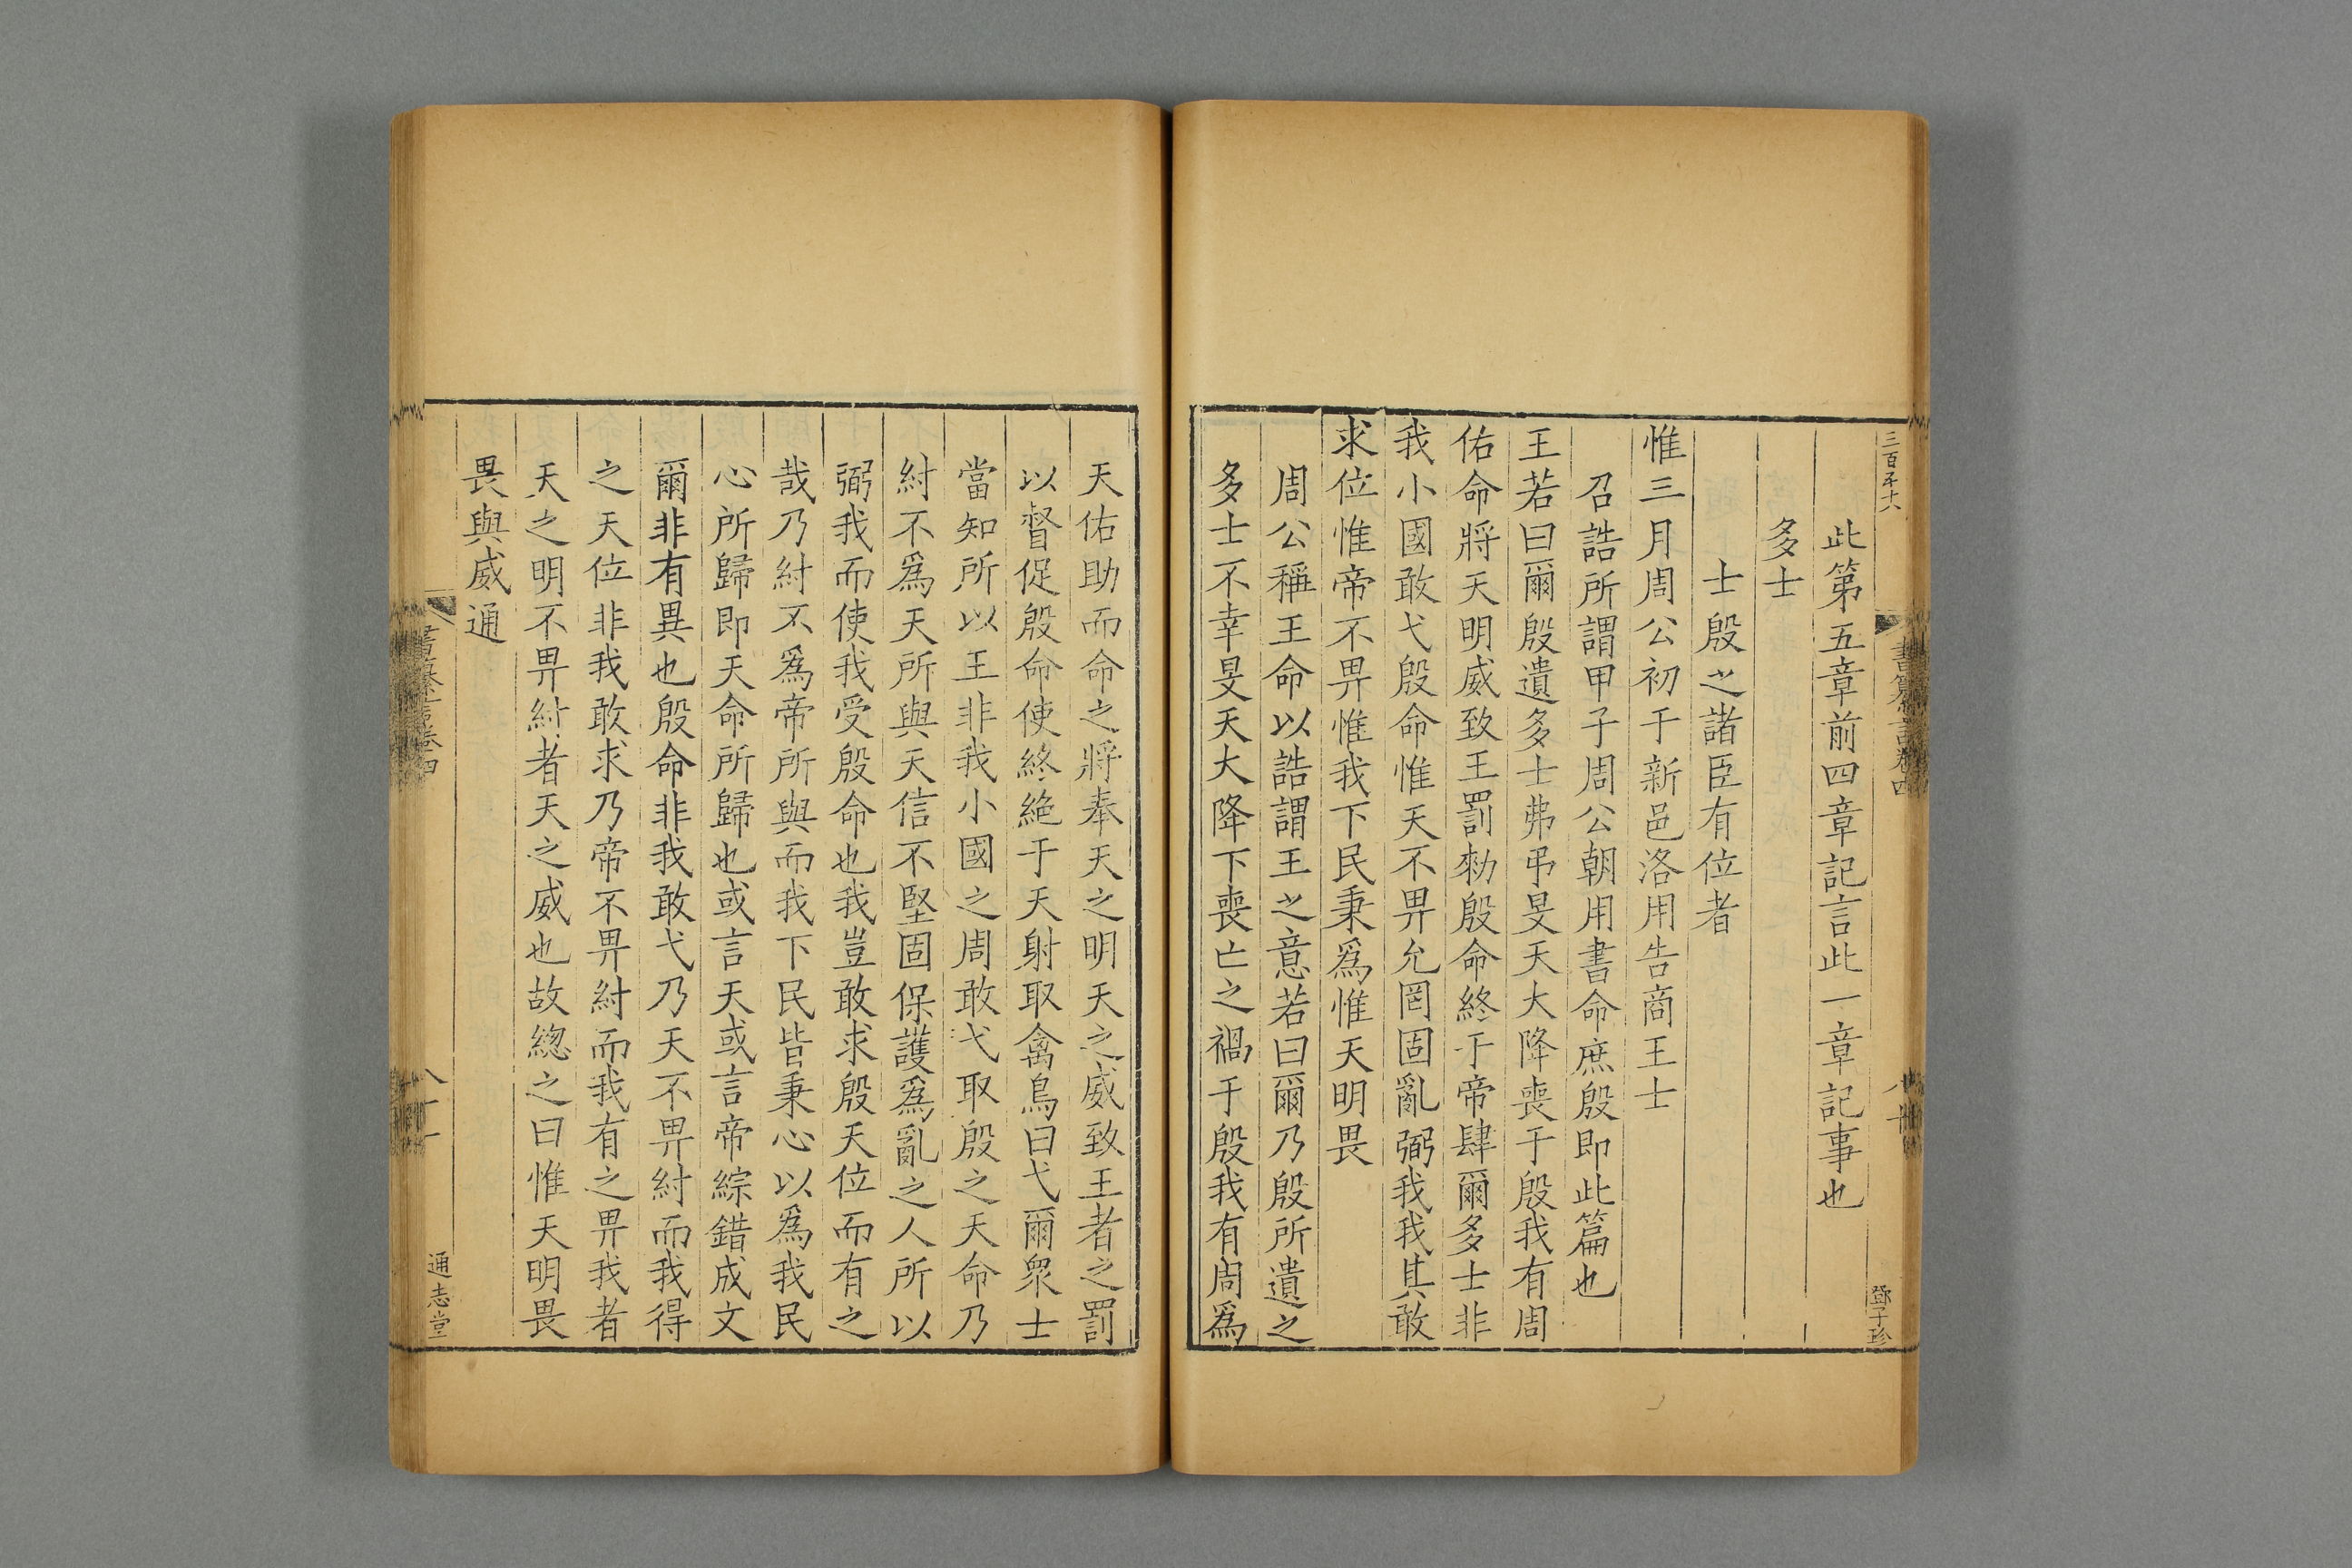 此第五章前四章記言此一章記事也
多士
士殷之諸臣有位者
惟三月周公初于新邑洛用告商王士
召誥所謂甲子周公朝用書命庶殷即此篇也
王若曰爾殷遺多士弗弔旻天大降喪于殷我有周
佑命將天明威致王罰勑殷命終于帝肆爾多士非
我小國敢弋殷命惟天不畀允罔固亂弼我我其敢
求位惟帝不畀惟我下民秉爲惟天明畏
周公稱王命以誥謂王之意若曰爾乃殷所遺之
多士不幸旻天大降下喪亡之禍于殷我有周爲
天佑助而命之將奉天之明天之威致王者之罰
以督促殷命使終絶于天射取禽鳥曰弋爾衆士
當知所以王非我小國之周敢弋取殷之天命乃
紂不爲天所與天信不堅固保護爲亂之人所以
弼我而使我受殷命也我豈敢求殷天位而有之
哉乃紂不爲帝所與而我下民皆秉心以爲我民
心所歸即天命所歸也或言天或言帝綜錯成文
爾非有異也殷命非我敢弋乃天不畀紂而我得
之天位非我敢求乃帝不畀紂而我有之畀我者
天之明不畀紂者天之威也故緫之曰惟天明畏
畏與威通
通志堂
鄧子珍